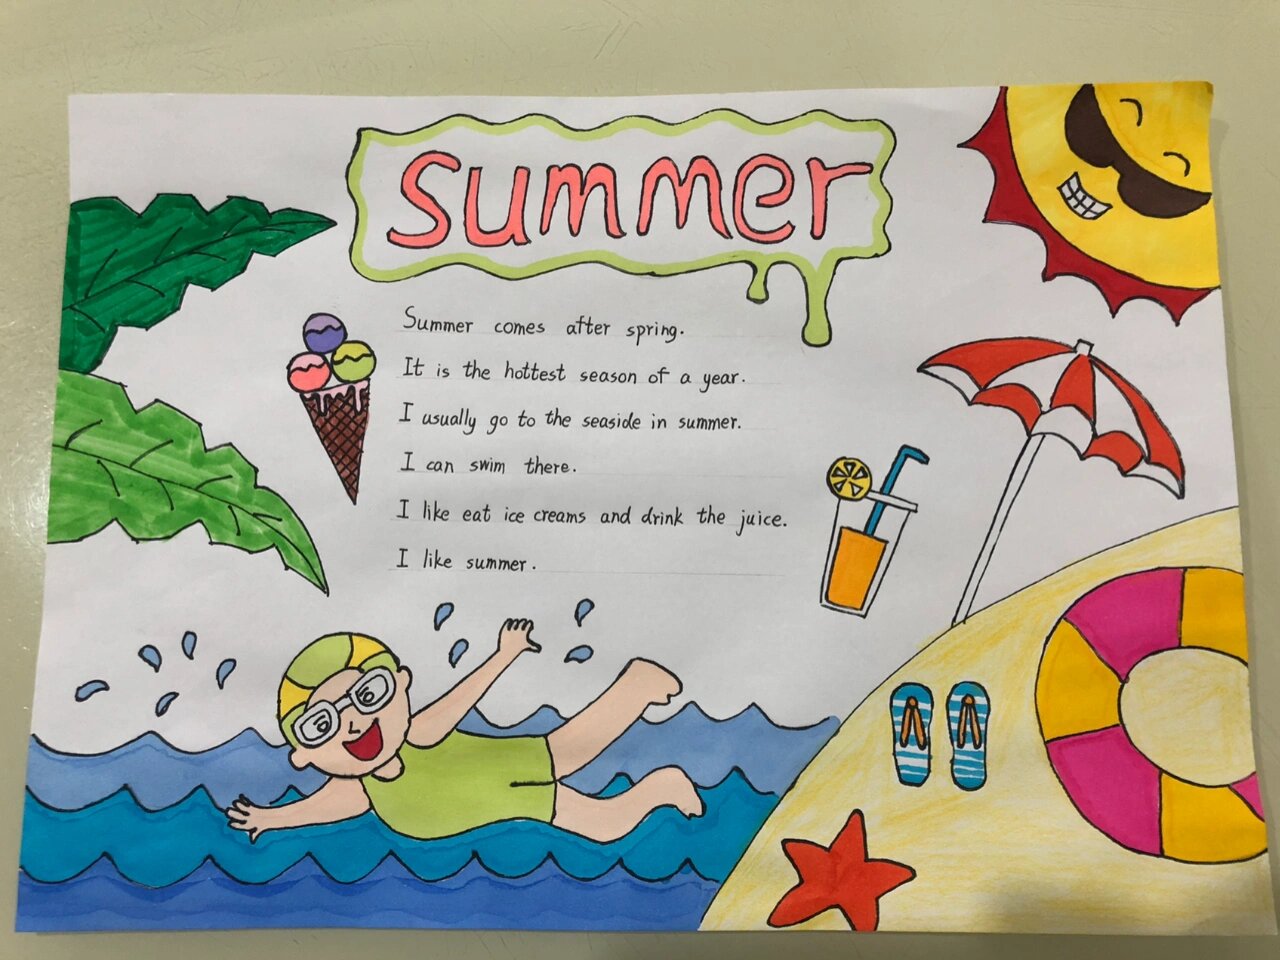 summer
Summer comes after spring.
It is the hottest season of a year.
I usually go to the seaside in summer.
I can swim there.
I like eat ice creams and drink the juice.
I like summer.